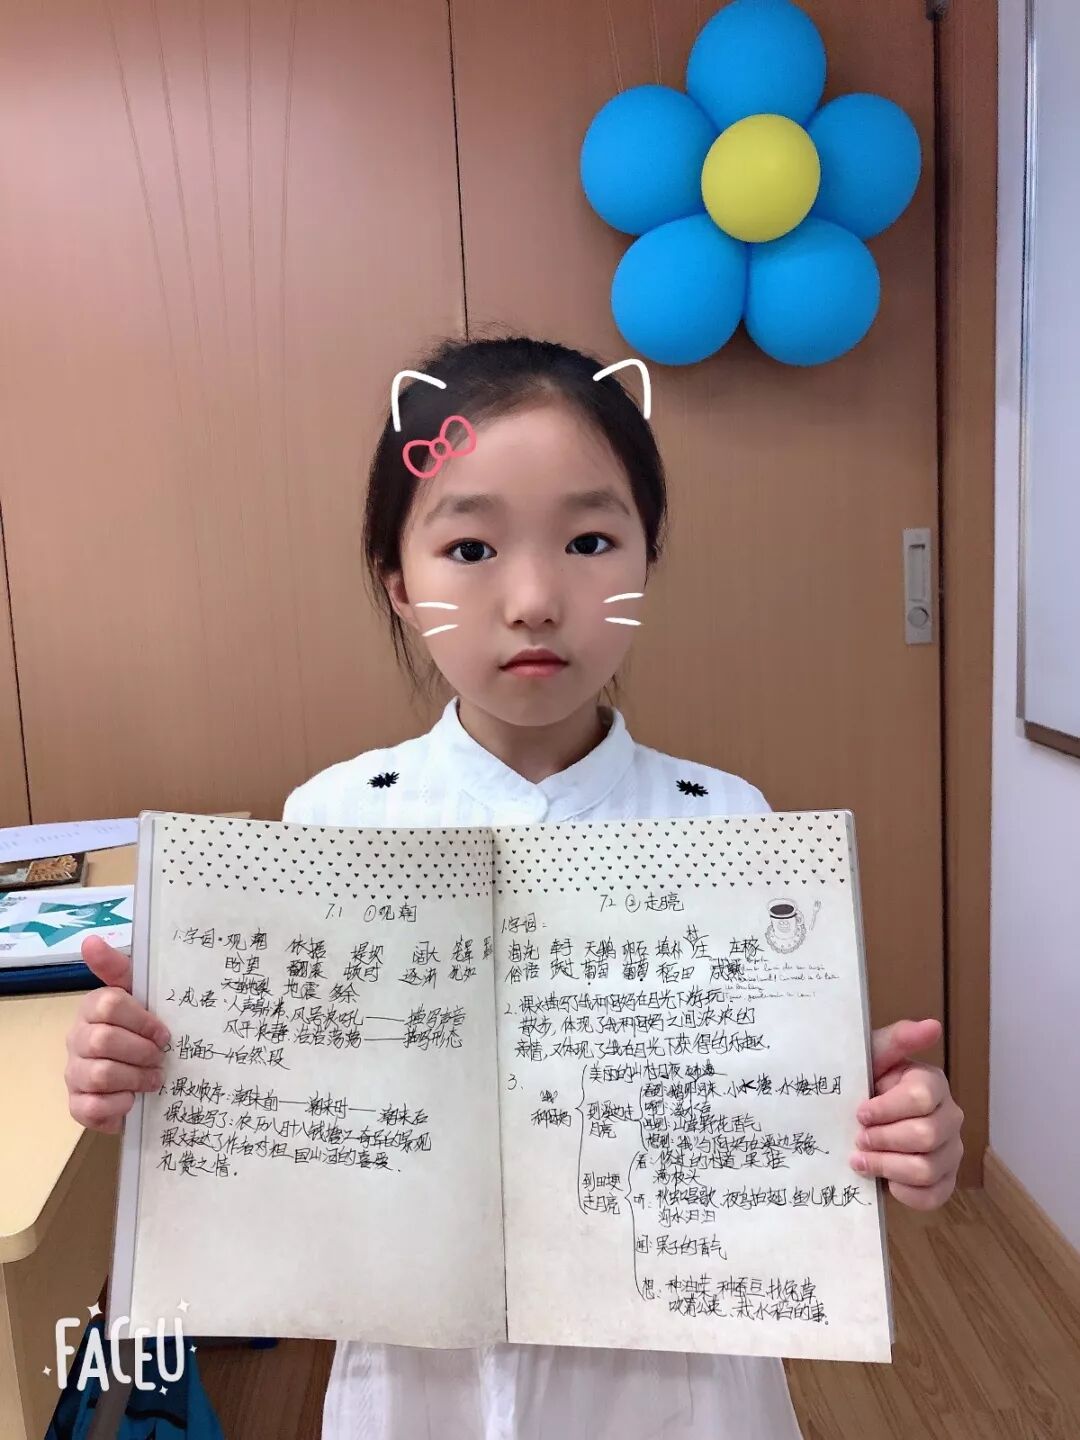 7.1 ①观潮
1.字词:观潮 依据 堤坝 阔大 笼罩
盼望 翻滚 顿时 逐渐 犹如
天崩地裂 地震 余
2.成语:人声鼎沸、风号浪吼——描写声音
风平浪静、浩浩荡荡——描写形态
3.背诵3—4自然段
课文顺序:潮来前——潮来时——潮来后
课文描写了:农历八月十八钱塘江奇特的景观
课文表达了作者对祖国山河的喜爱、
礼赞之情。
7.2 ②走月亮
1.字词:
淘洗 牵手 天鹅 卵石 填补 庄 庄稼
俗语 饭 葡萄 稻田 成熟
2.课文描写了我和阿妈在月光下游玩、
散步,体现了我和阿妈之间浓浓的
亲情,又体现了我在月光下获得的乐趣。
3.
美丽的山村月夜
和阿妈
到溪边走
月亮
小水塘、水塘抱月
闻:山草野花香气
想到:我与阿妈在溪边景象。
到田埂
走月亮
看:修过的村道、果子挂
满枝头
听:秋虫唱歌、夜鸟拍翅、鱼儿跳跃、
沟水汩汩
闻:果子的香气
想:种油菜、种蚕豆、找兔草
吹蒲公英、栽水稻的事。
FACEU